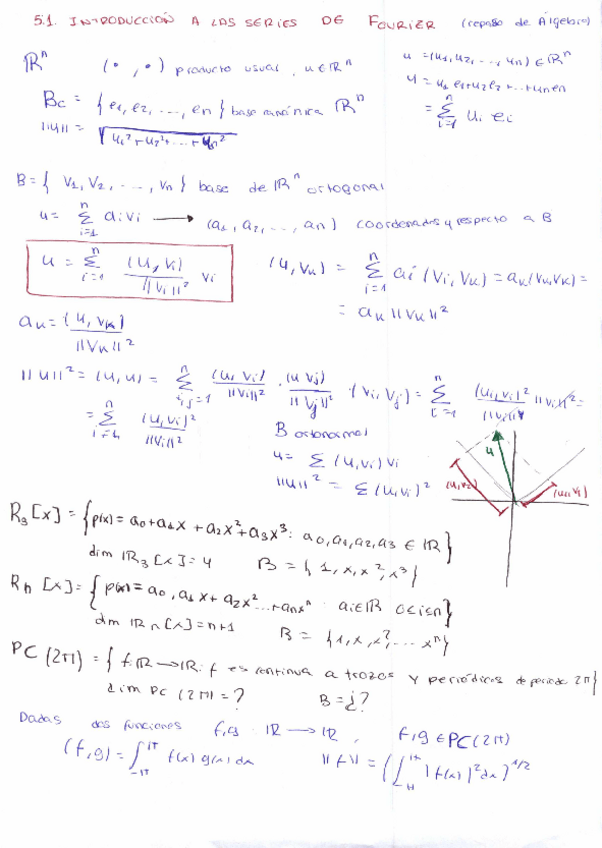 5.1. INTRODUCCIÓN A LAS SERIES DE FOURIER (repaso de Álgebra)
ℝⁿ (·, ·) producto usual, u∈ℝⁿ
u = (u₁, u₂, ..., uₙ) ∈ ℝⁿ
u = u₁e₁+u₂e₂+...+uₙeₙ
= Σᵢ₌₁ⁿ uᵢ eᵢ
Bc = {e₁, e₂, ..., eₙ} base canónica ℝⁿ
||u|| = √(u₁²+u₂²+...+uₙ²)
B = {v₁, v₂, ..., vₙ} base de ℝⁿ ortogonal
u = Σᵢ₌₁ⁿ aᵢvᵢ → (a₁, a₂, ..., aₙ) coordenadas respecto a B
u = Σᵢ₌₁ⁿ (u, vᵢ)/||vᵢ||² vᵢ
(u, vₖ) = Σᵢ₌₁ⁿ aᵢ (vᵢ, vₖ) = aₖ(vₖ,vₖ) =
= aₖ ||vₖ||²
aₖ = (u, vₖ)/||vₖ||²
||u||² = (u, u) = Σᵢ,ⱼ₌₁ⁿ (u, vᵢ)/||vᵢ||² · (u, vⱼ)/||vⱼ||² · (vᵢ, vⱼ) = Σᵢ₌₁ⁿ (u, vᵢ)²/||vᵢ||⁴ ||vᵢ||² =
= Σᵢ₌₁ⁿ (u, vᵢ)²/||vᵢ||²
B ortonormal
u = Σ (u, vᵢ) vᵢ
||u||² = Σ (u, vᵢ)²
u
(u, v₂)
(u, v₁)
ℝ₃[x] = {p(x) = a₀+a₁x+a₂x²+a₃x³ : a₀, a₁, a₂, a₃ ∈ ℝ}
dim ℝ₃[x] = 4 B = {1, x, x², x³}
ℝₙ[x] = {p(x) = a₀, a₁x + a₂x²...+aₙxⁿ aᵢ∈ℝ 0≤i≤n}
dim ℝₙ[x] = n+1 B = {1, x, x², ... xⁿ}
PC(2π) = {f: ℝ → ℝ : f es continua a trozos y periódicos de periodo 2π}
dim PC(2π) = ? B = ¿?
Dadas dos funciones f, g : ℝ → ℝ, f, g ∈ PC(2π)
(f, g) = ∫₋π^π f(x) g(x) dx ||f|| = (∫₋π^π |f(x)|² dx)^1/2